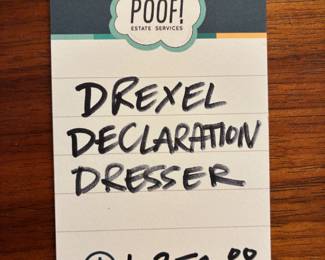 POOF!
ESTATE SERVICES
DREXEL
DECLARATION
DRESSER